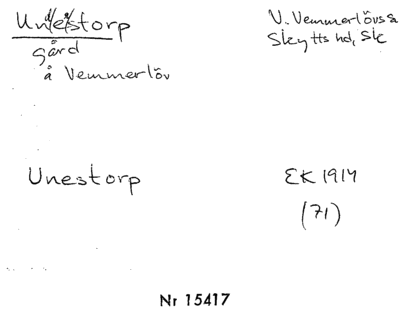 Unestorp
V. Vemmerlövs s
Skytts hd, Sk
gård
å Vemmerlöv
Unestorp
EK 1914
(71)
Nr 15417